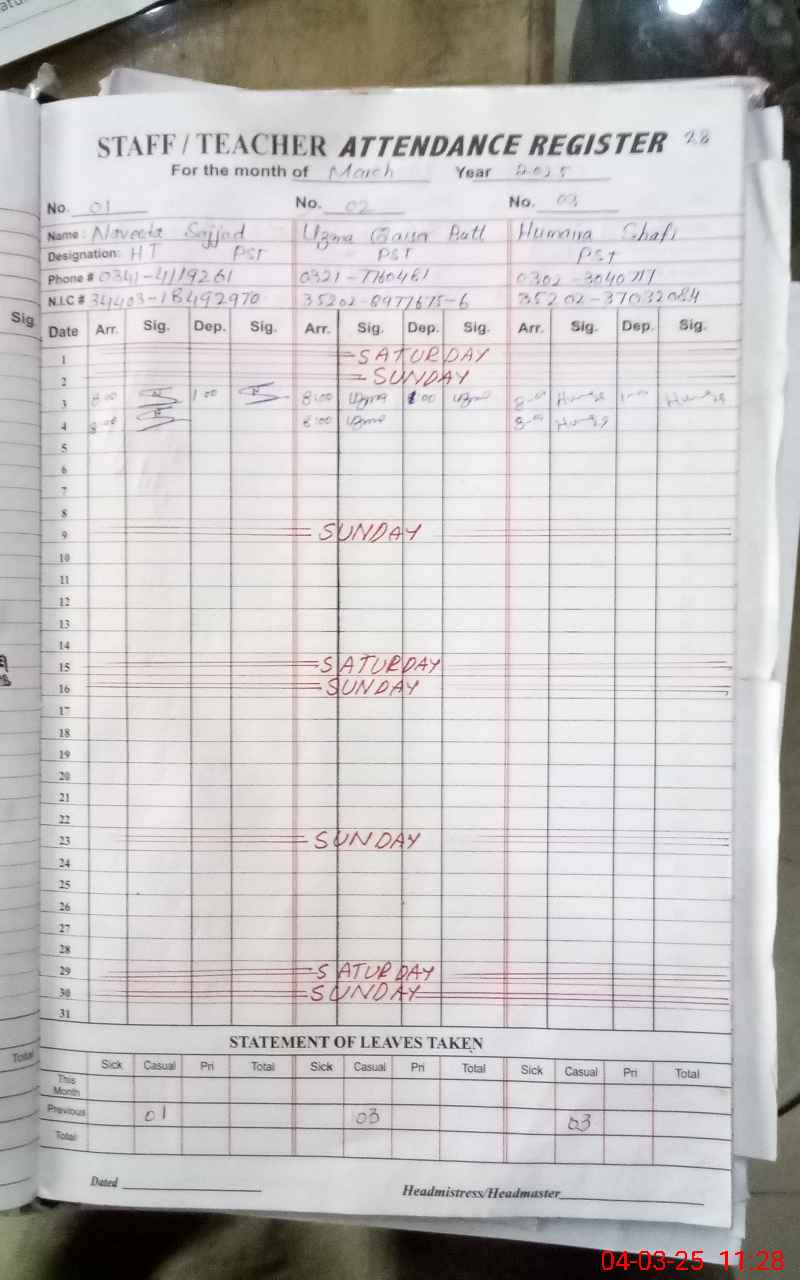 STAFF / TEACHER ATTENDANCE REGISTER 28
For the month of March Year 2025
No. 01 No. 02 No. 03
Name: Naveeda Sajjad Uzma Qaiser Butt Humaira Shafi
Designation: HT PST PST PST
Phone # 0341-4119261 0321-7760461
N.I.C # 34403-18492970 35202-8977675-6 35202-37032084
Sig.
Date Arr. Sig. Dep. Sig. Arr. Sig. Dep. Sig. Arr. Sig. Dep. Sig.
1 SATURDAY
2 SUNDAY
3 8:00 1:00 8:00 Uzma 1:00 Uzma 8:00 1:00
4 8:00 8:00 Uzma 8:00
5
6
7
8
9 SUNDAY
10
11
12
13
14
15 SATURDAY
16 SUNDAY
17
18
19
20
21
22
23 SUNDAY
24
25
26
27
28
29 SATURDAY
30 SUNDAY
31
STATEMENT OF LEAVES TAKEN
Total
Sick Casual Pri Total Sick Casual Pri Total Sick Casual Pri Total
This Month
Previous 01 03 03
Total
Dated
Headmistress/Headmaster
04-03-25 11:28